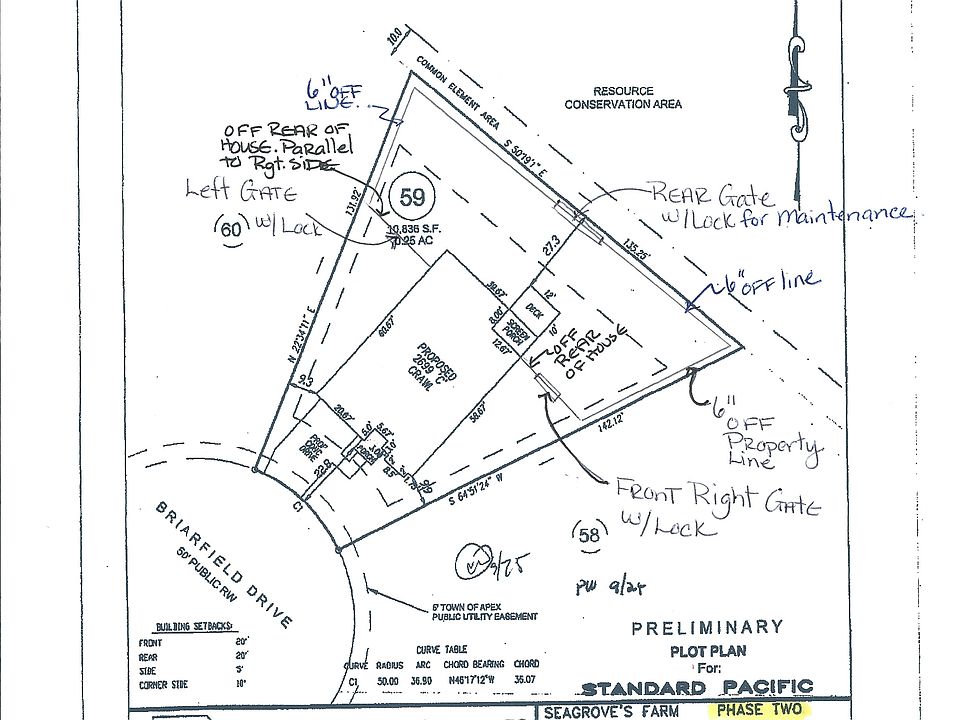 10.0
COMMON ELEMENT AREA
RESOURCE
CONSERVATION AREA
6" OFF
LINE.
OFF REAR OF
HOUSE. Parallel
to Rgt. SIDE
Left GATE
w/Lock
60
59
10,836 S.F.
0.25 AC
131.92'
S 50'79'1" E
REAR Gate
w/Lock for maintenance
135.25'
27.3
~6" OFF line
39.67'
12'
DECK
10'
8.00'
SCREEN
PORCH
12.67'
OFF
REAR
OF HOUSE
60.67'
PROPOSED
2699 "C"
CRAWL
58.67'
N 22'34'11" E
9.3
20.67'
6.0'
5.67'
PORCH
22.8
8.5'
142.12'
S 64'51'24" W
6"
OFF
Property
Line
FRONT Right GATE
w/Lock
58
C1
BRIARFIELD DRIVE
50' PUBLIC RW
9/25
PW 9/25
5' TOWN OF APEX
PUBLIC UTILITY EASEMENT
BUILDING SETBACKS:
FRONT 20'
REAR 20'
SIDE 5'
CORNER SIDE 10'
CURVE TABLE
CURVE RADIUS ARC CHORD BEARING CHORD
C1 50.00 36.90 N46'17'12"W 36.07
PRELIMINARY
PLOT PLAN
For:
STANDARD PACIFIC
SEAGROVE'S FARM PHASE TWO